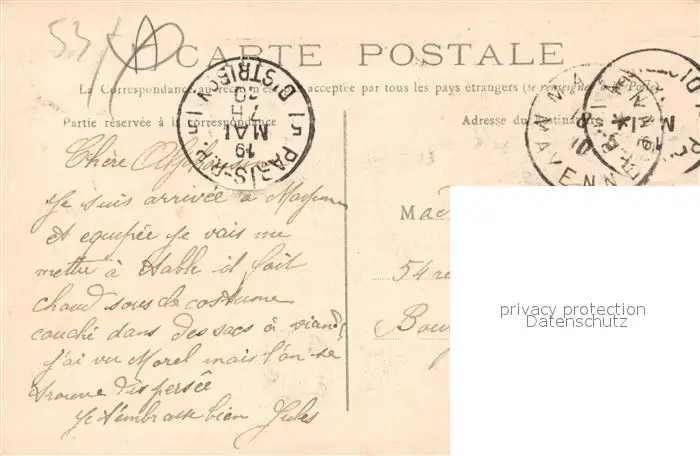 53
CARTE POSTALE
La Correspondance au recto n'est pas acceptée par tous les pays étrangers (se renseigner à la Poste)
Partie réservée à la correspondance
Adresse du destinataire
PARIS-R.P. DISTRIBON
15
19
MAI
7 H
08
MAYENNE
Chère Alphonsine
Je suis arrivée à Mayenne
et equipée je vais me
mettre à table il fait
chaud sous ce costume
couché dans des sacs à viande
j'ai vu Morel mais l'on se
trouve dispersée
Je t'embrasse bien Jules
Mad
54 r
Bou
privacy protection
Datenschutz